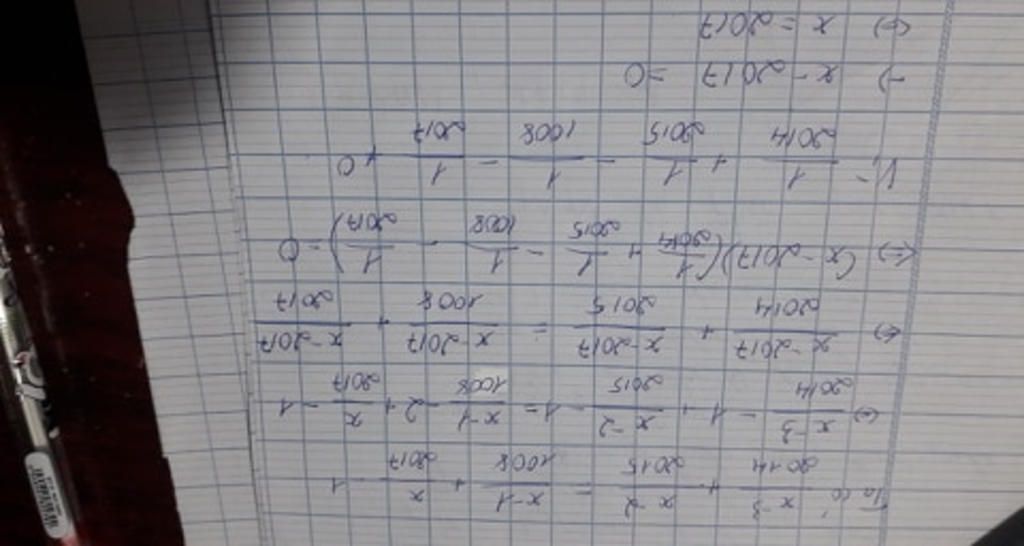 Ta có: x-3/2014 + x-2/2015 = x-1/1008 + x/2017 - 1
(=) x-3/2014 - 1 + x-2/2015 - 1 = x-1/1008 - 2 + x/2017 - 1
(=) x-2017/2014 + x-2017/2015 = x-2017/1008 + x-2017/2017
(=) (x-2017)(1/2014 + 1/2015 - 1/1008 - 1/2017) = 0
Vì 1/2014 + 1/2015 - 1/1008 - 1/2017 ≠ 0
=) x - 2017 = 0
(=) x = 2017